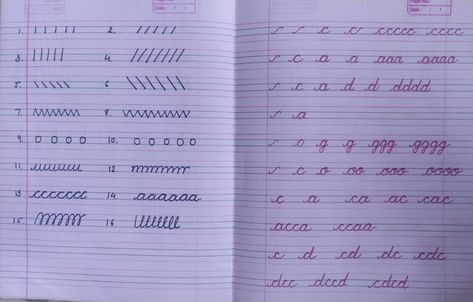 Date : / /
1. | | | | | 2. / / / / /
3 | | | | | 4. / / / / / / /
5. \ \ \ \ \ 6 \ \ \ \ \ \
7. 8.
9. o o o o 10. o o o o o
11. uuuuuuu 12. mmmmmm
13 ccccccc 14. aaaaaa
15. 16 lllllll
Page No.:
Date : / /
c ccccc cccc
c a a aaa aaaa
c a d d dddd
a
o g g ggg gggg
c o oo ooo oooo
c a ca ac cac
acca ccaa
c d cd dc cdc
dcc dccd cdcd